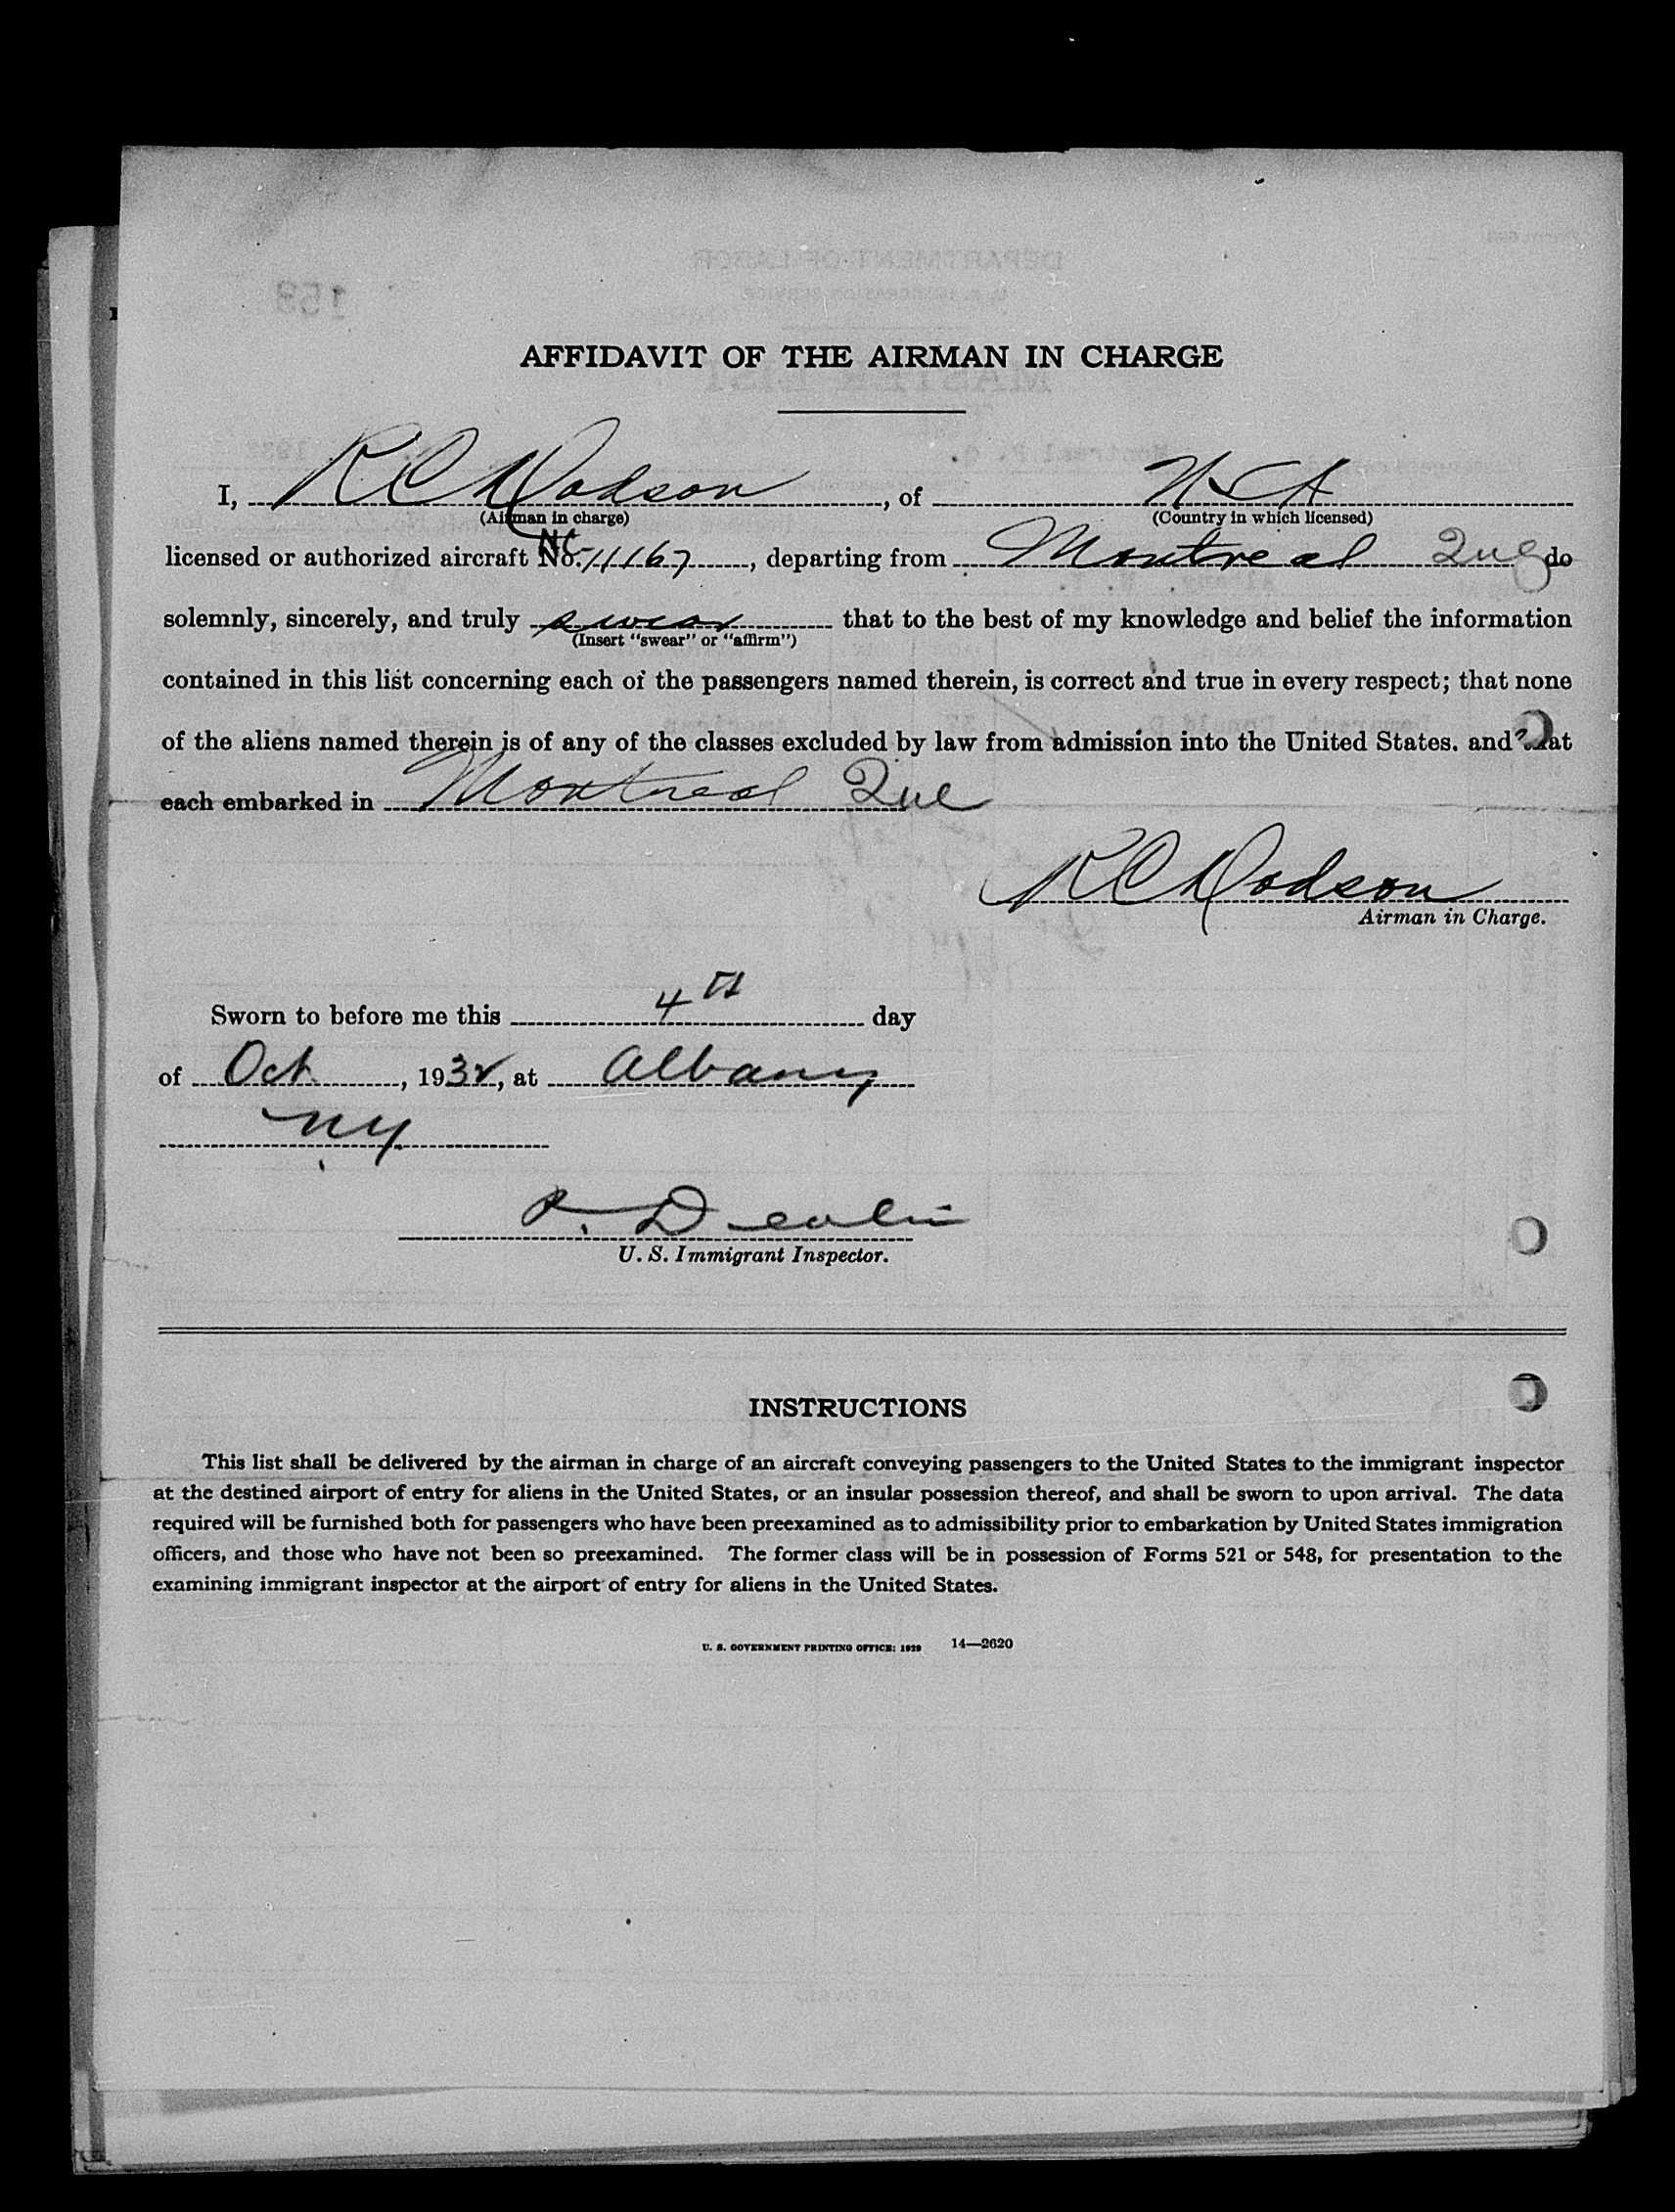 AFFIDAVIT OF THE AIRMAN IN CHARGE
I, R C Dodson, of U S A
(Airman in charge) (Country in which licensed)
licensed or authorized aircraft No. NC 11167, departing from Montreal Que do
solemnly, sincerely, and truly swear that to the best of my knowledge and belief the information
(Insert "swear" or "affirm")
contained in this list concerning each of the passengers named therein, is correct and true in every respect; that none
of the aliens named therein is of any of the classes excluded by law from admission into the United States. and that
each embarked in Montreal Que
R C Dodson
Airman in Charge.
Sworn to before me this 4th day
of Oct, 1932, at Albany
NY
U. S. Immigrant Inspector.
INSTRUCTIONS
This list shall be delivered by the airman in charge of an aircraft conveying passengers to the United States to the immigrant inspector
at the destined airport of entry for aliens in the United States, or an insular possession thereof, and shall be sworn to upon arrival. The data
required will be furnished both for passengers who have been preexamined as to admissibility prior to embarkation by United States immigration
officers, and those who have not been so preexamined. The former class will be in possession of Forms 521 or 548, for presentation to the
examining immigrant inspector at the airport of entry for aliens in the United States.
U. S. GOVERNMENT PRINTING OFFICE: 1929 14—2620